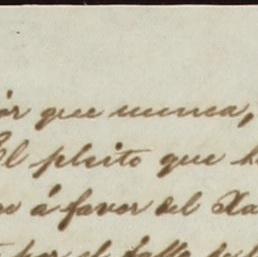 que nunca,
El pleito que
á favor del
por el fallo